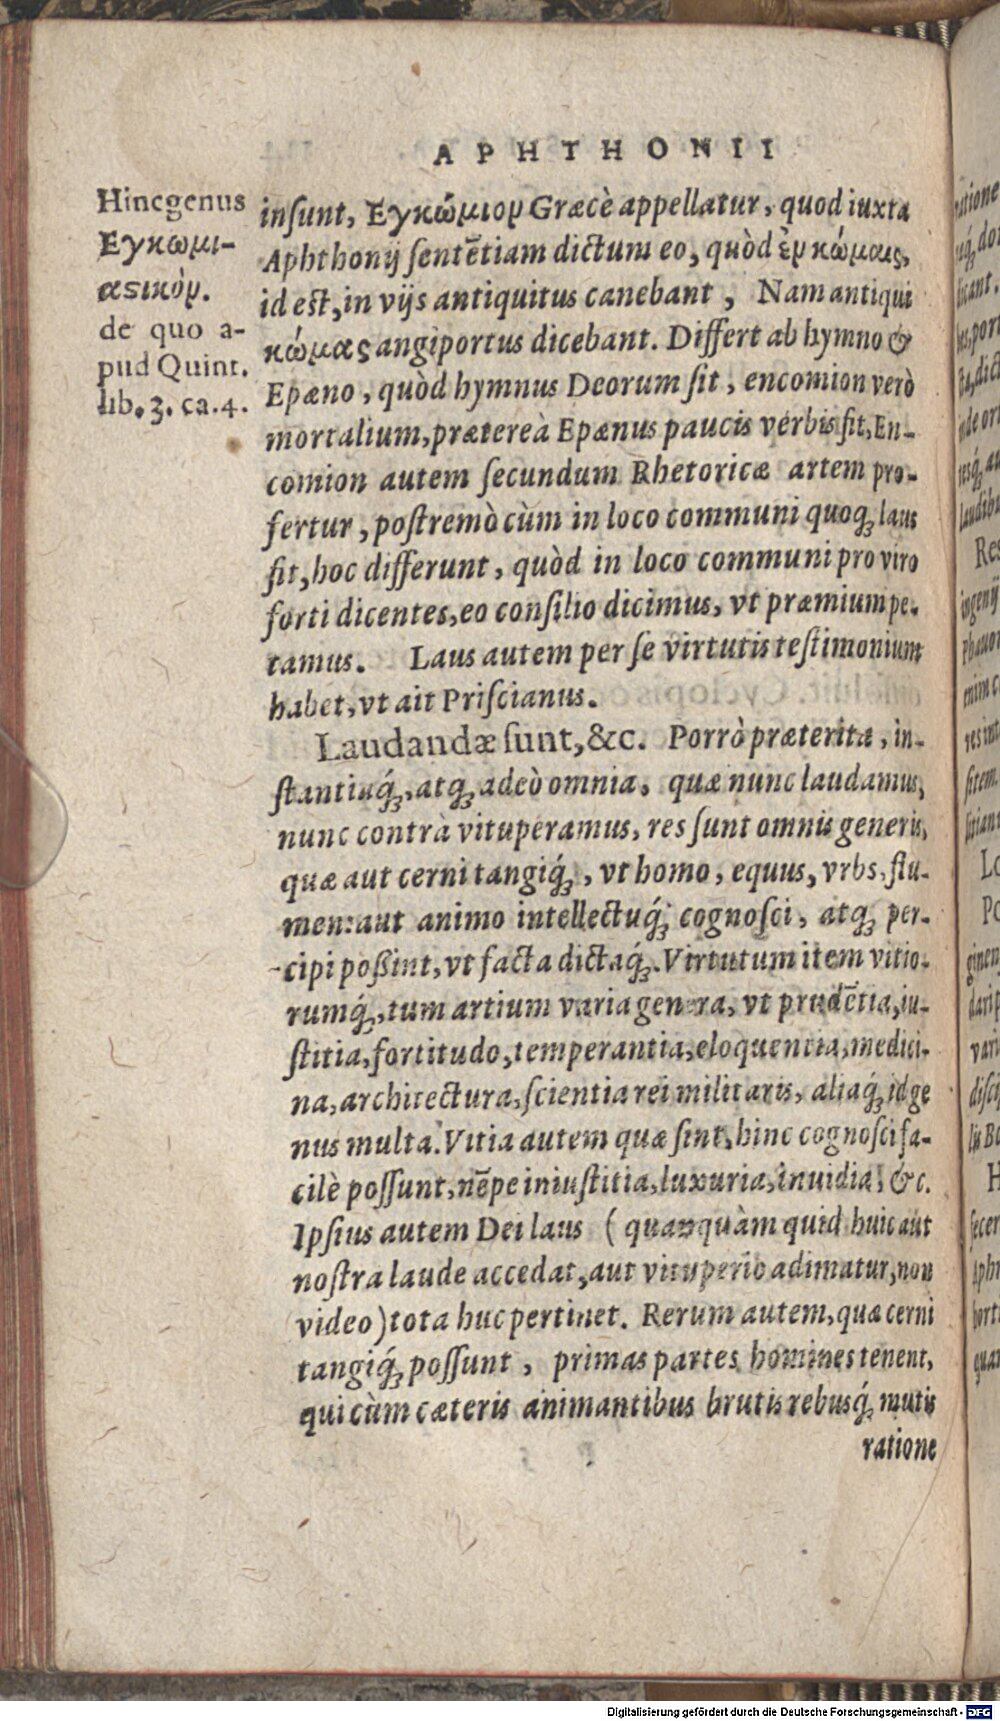 APHTHONII
Hincgenus
Εγκωμι-
αςικὸν.
de quo a-
pud Quint.
lib. 3. ca. 4.
insunt, Εγκώμιον Græcè appellatur, quod iuxta
Aphthonij sentētiam dictum eo, quòd ἐν κώμαις,
id est, in vijs antiquitus canebant, Nam antiqui
κώμας angiportus dicebant. Differt ab hymno &
Epæno, quòd hymnus Deorum sit, encomion verò
mortalium, prætereà Epænus paucis verbis fit, En-
comion autem secundum Rhetoricæ artem pro-
fertur, postremò cùm in loco communi quoq; laus
fit, hoc differunt, quòd in loco communi pro viro
forti dicentes, eo consilio dicimus, vt præmium pe-
tamus. Laus autem per se virtutis testimonium
habet, vt ait Priscianus.
Laudandæ sunt, &c. Porrò præterita, in-
stantiaq́;, atq; adeò omnia, quæ nunc laudamus,
nunc contrà vituperamus, res sunt omnis generis,
quæ aut cerni tangiq́;, vt homo, equus, vrbs, flu-
men: aut animo intellectuq́; cognosci, atq; per-
cipi poßint, vt facta dictaq́;. Virtutum item vitio-
rumq́;, tum artium varia genera, vt prudētia, iu-
stitia, fortitudo, temperantia, eloquentia, medici-
na, architectura, scientia rei militaris, aliaq́; id ge
nus multa. Vitia autem quæ sint, hinc cognosci fa-
cilè possunt, nēpe iniustitia, luxuria, inuidia, &c.
Ipsius autem Dei laus (quanquàm quid huic aut
nostra laude accedat, aut vituperio adimatur, non
video) tota huc pertinet. Rerum autem, quæ cerni
tangiq́; possunt, primas partes homines tenent,
qui cùm cæteris animantibus brutis rebusq́; mutis
ratione
Digitalisierung gefördert durch die Deutsche Forschungsgemeinschaft - DFG